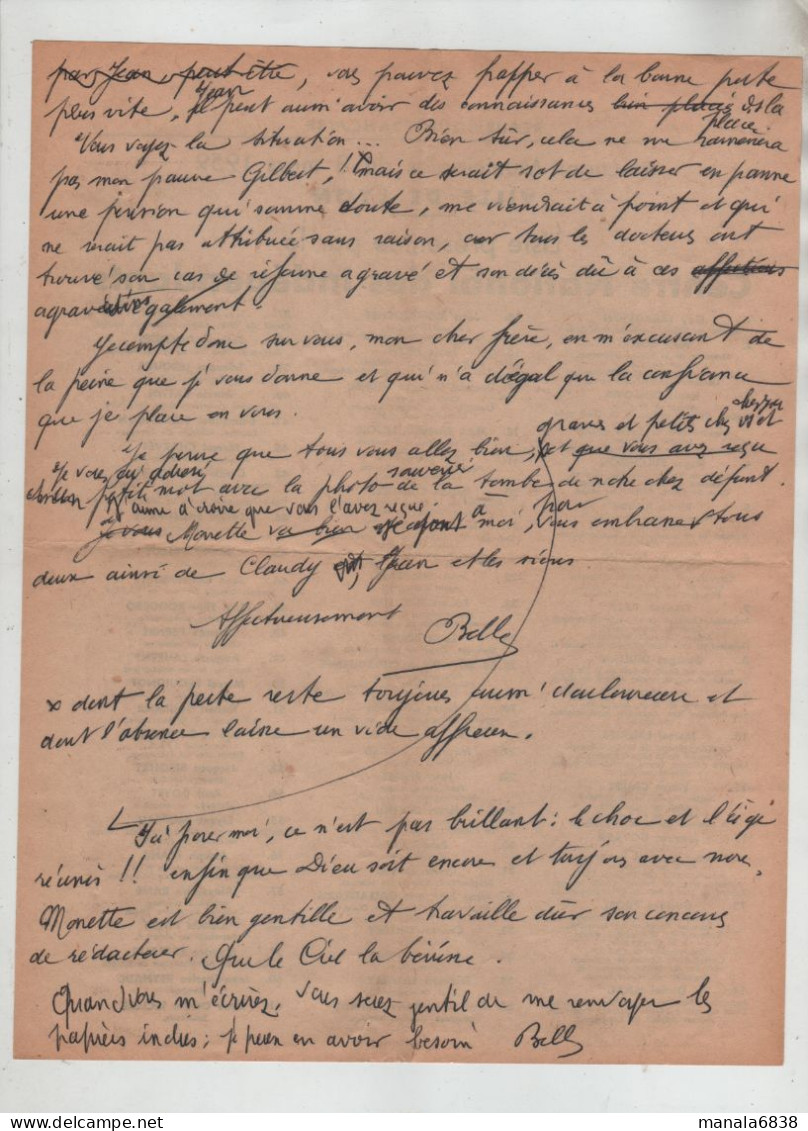 par Jean peut être, vous pouvez frapper à la bonne porte
plus vite, Jean peut aussi avoir des connaissances bien placés ds la
place
Vous voyez la situation... Bien sûr, cela ne me ramènera
pas mon pauvre Gilbert, !! x mais ce serait sot de laisser en panne
une pension qui somme toute, me viendrait à point et qui
ne serait pas attribuée sans raison, car tous les docteurs ont
trouvé son cas de réforme agravé et son décès dû à ces affections
agravées également.
Je compte donc sur vous, mon cher frère, en m'excusant de
la peine que je vous donne et qui n'a d'égal que la confiance
que je place en vous.
Je pense que tous vous allez bien, graves et petits chez vs et et que vous avez reçu
Je vous ai adressé
petit mot avec la photo souvenir de la tombe de notre cher défunt.
J'aime à croire que vous l'avez reçue.
Je vous Monette va bien se joint à moi, pour vous embrasser tous
deux ainsi de Claudy, Jean et les siens
Affectueusement
Belle
x dont la perte reste toujours aussi douloureuse et
dont l'absence laisse un vide affreux.
Ici pour moi, ce n'est pas brillant : le choc et l'âge
réunis !! enfin que Dieu soit encore et toujours avec nous.
Monette est bien gentille et travaille dur son concours
de rédacteur. Que le Ciel la bénisse.
Quand vous m'écrirez, vous serez gentil de me renvoyer les
papiers inclus ; je peux en avoir besoin Belle
manala6838